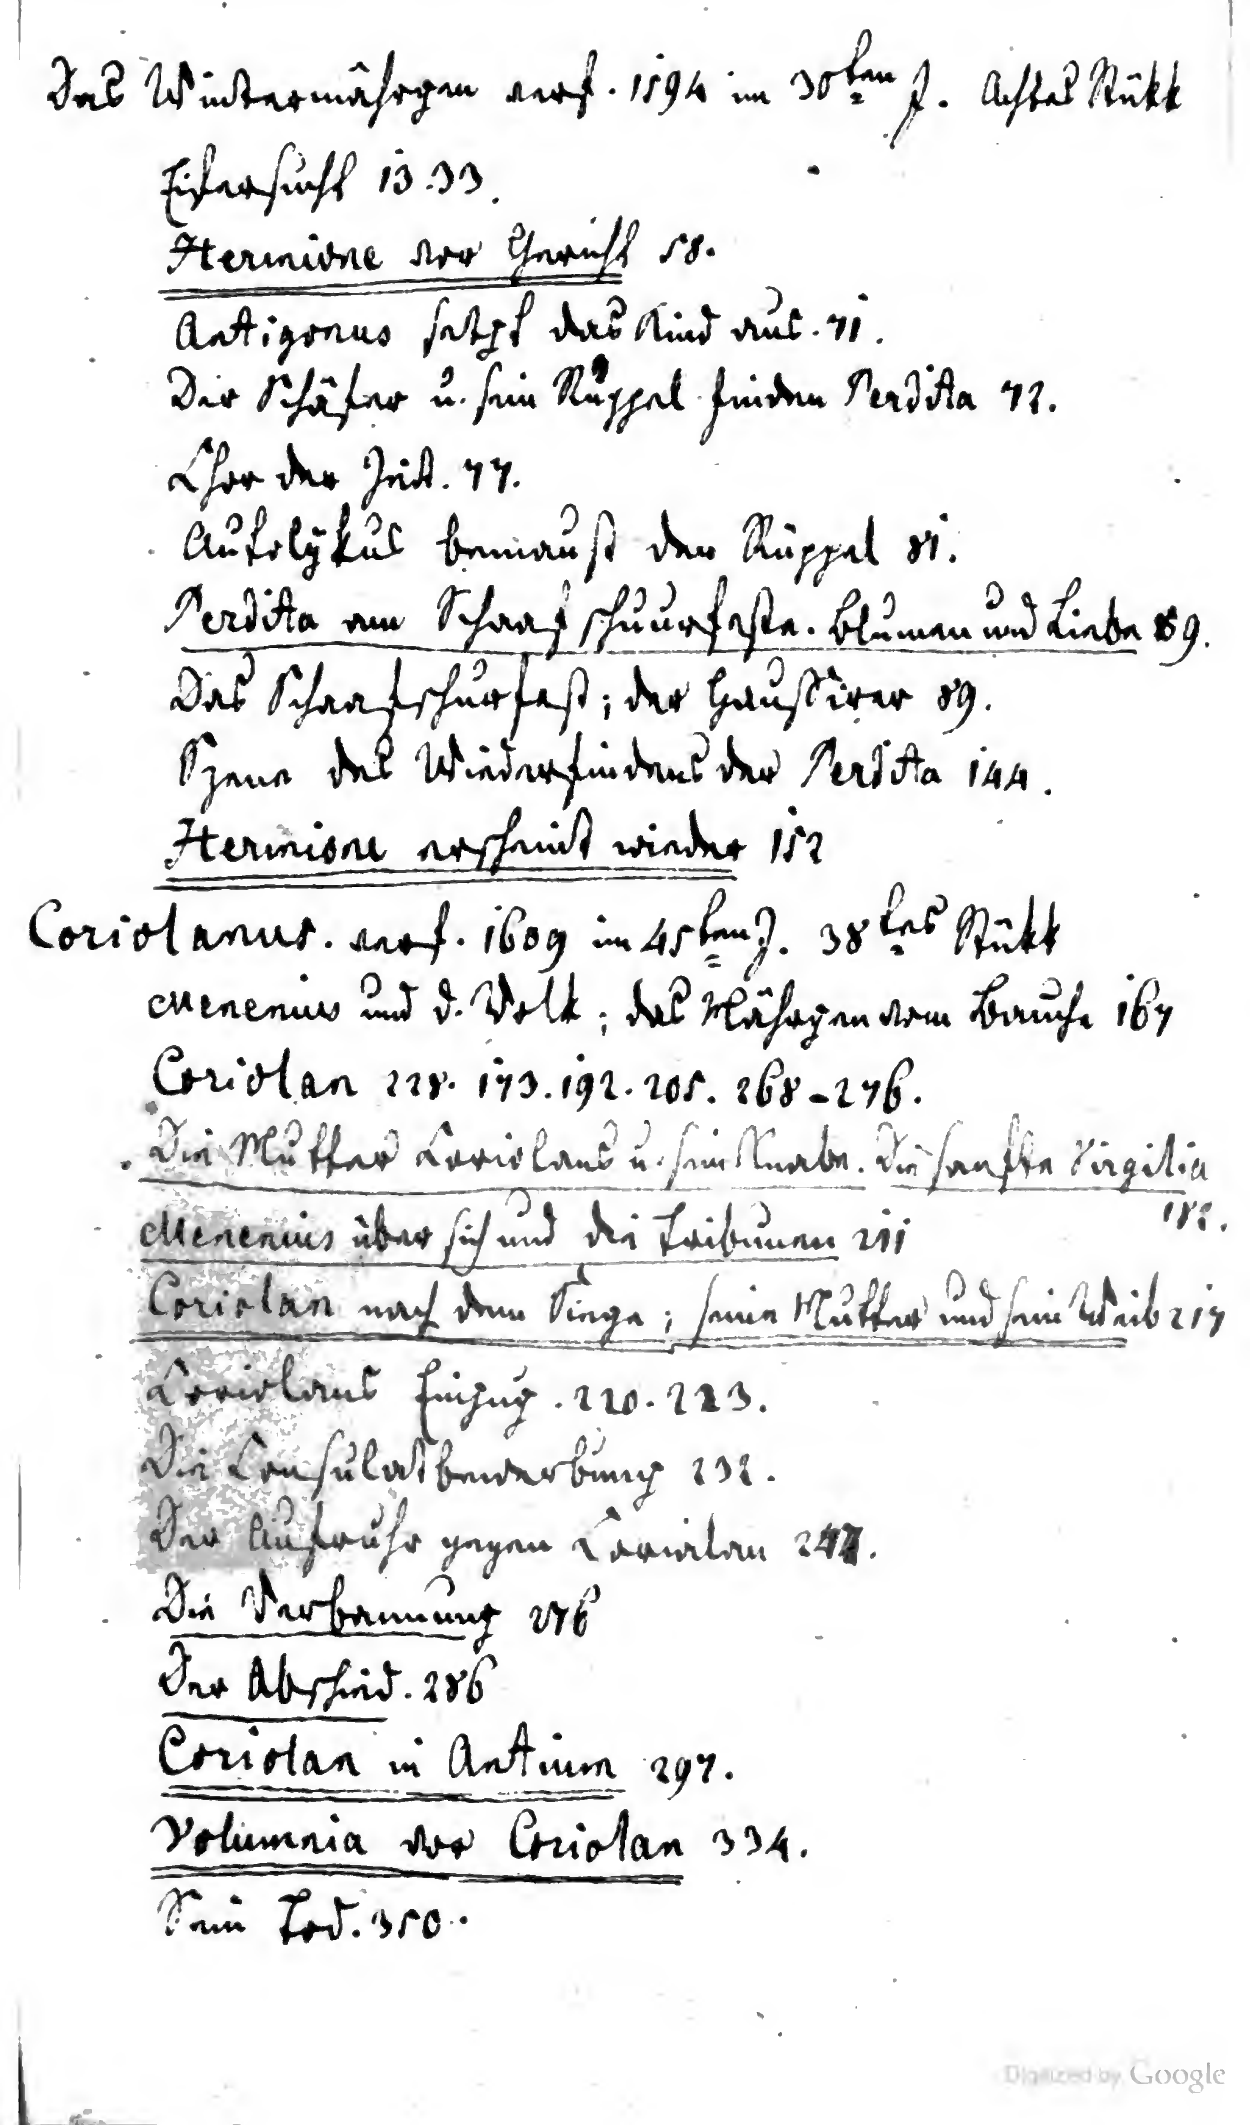 Das Wintermährgen verf. 1594 im 30ten J. Achtes Stükk
Eifersucht 13.33.
Hermione vor Gericht 58.
Antigonus setzt das Kind aus. 71.
Der Schäfer u. sein Rüppel finden Perdita 72.
Chor der Zeit. 77.
Autolykus bemaust den Rüppel 81.
Perdita am Schaafschuurfeste. Blumen und Liebe 89.
Das Schaafschurfest; der Haussirer 89.
Szene des Wiederfindens der Perdita 144.
Hermione erscheint wieder 152
Coriolanus. verf. 1609 im 45ten J. 38tes Stükk
Menenius und d. Volk; das Mährgen vom Bauche 167
Coriolan 228. 173. 192. 205. 268-276.
Die Mutter Coriolans u. sein Knabe. Die sanfte Virgilia
182.
Menenius über sich und die Tribunen 211
Coriolan nach dem Siege; seine Mutter und sein Weib 217
Coriolans Einzug. 220. 223.
Die Consulatbewerbung 232.
Der Aufruhr gegen Coriolan
Die Verbannung 276
Der Abscheid. 286
Coriolan in Antium 297.
Volumnia vor Coriolan 334.
Sein Tod. 350.
Digitized by Google